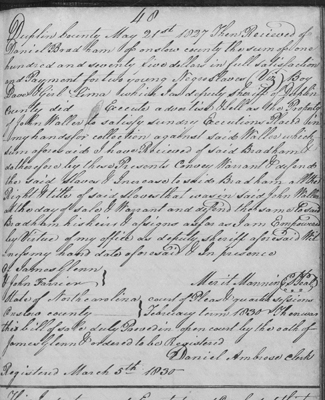 48
Duplin County May 21st 1827 Then Received of
Daniel Bradham of onslow county the sum of one
hundred and seventy five dollars in full satisfaction
and Payment for two young Negroe slaves (Viz) Boy
Girl which I as deputy sheriff of Duplin
County did Execute advertise & sell as the Property
of John Waller to satisfy sundry Executions Placed in
my hands for collection against said Waller which
sum aforesaid I have Received of said Bradham &
do therefore by these Presents Convey Warrant & defend
the said slaves & Increase to said Bradham all the
Right & title of said slaves that was in said John Waller
at the day of sale I Warrant and defend the same to said
Bradham his heirs & assigns as far as I am Empowered
by Virtue of my office as deputy sheriff aforesaid Wit
ness my hand date aforesaid In presence
of James Glenn
John Farrior
Merit Manning (Seal)
State of North carolina court of Pleas & quarter sessions
Onslow county February term 1830 Then was
this bill of sale duly Proved in open court by the oath of
James Glenn & ordered to be Registered
Daniel Ambrose Clerk
Registered March 5th 1830